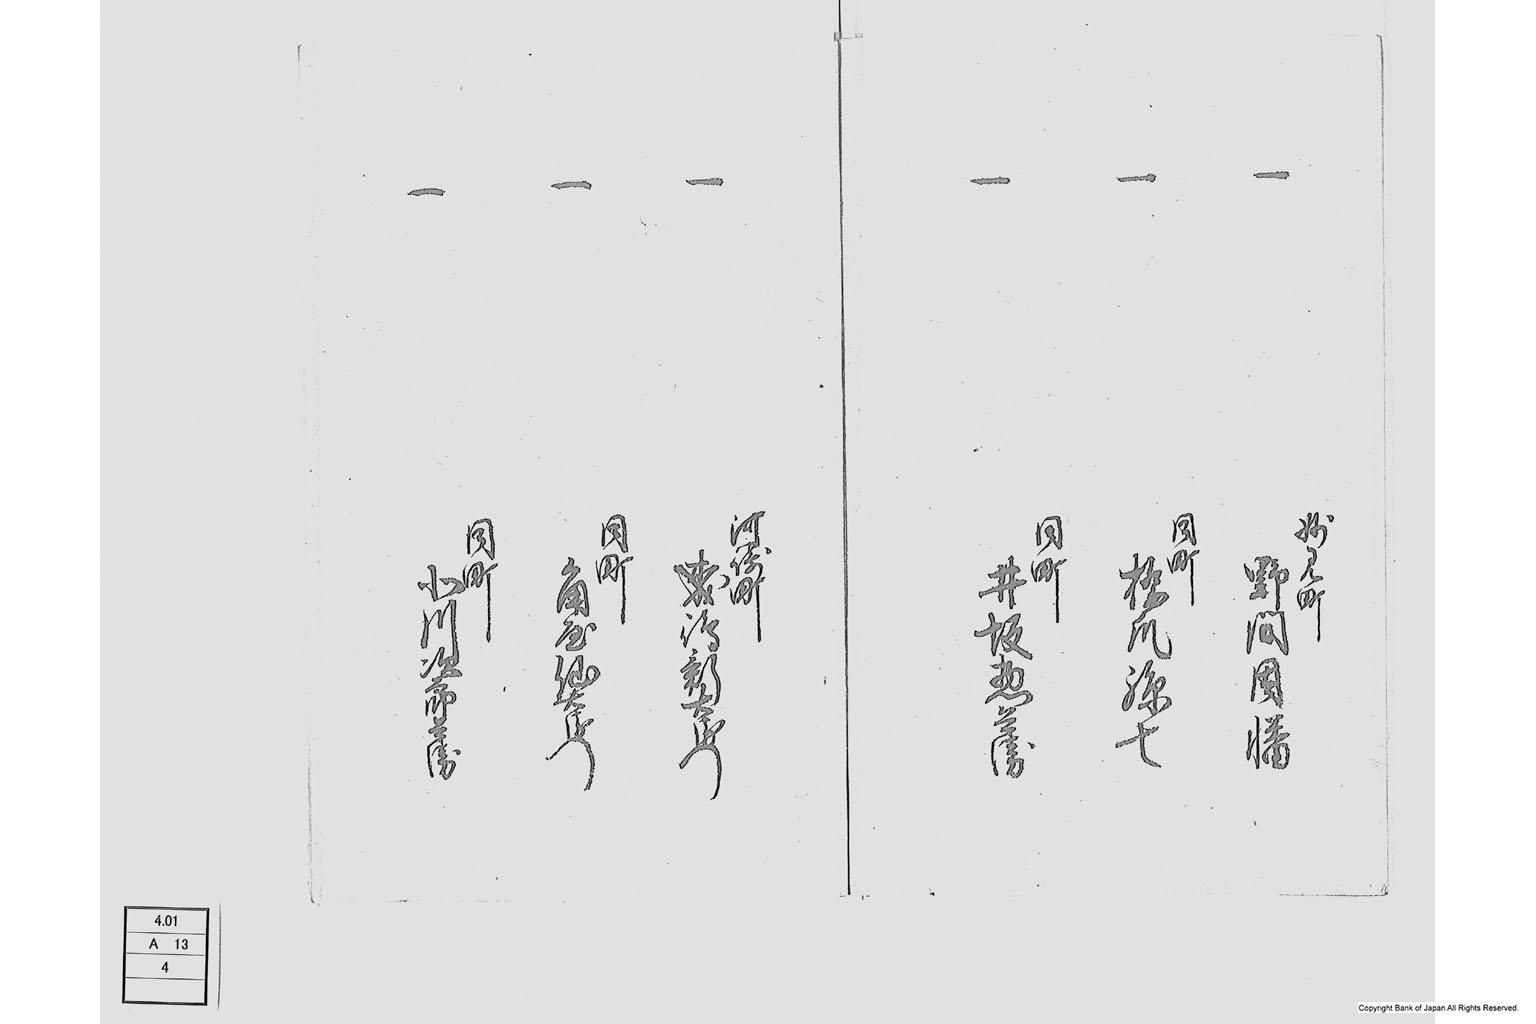 一
妙見町
野間因幡
一
同町
橋爪源七
一
同町
井坂惣兵衛
一
河崎町
新左衛門
一
同町
角屋仙左衛門
一
同町
小川次郎兵衛
4.01
A 13
4
Copyright Bank of Japan All Rights Reserved.